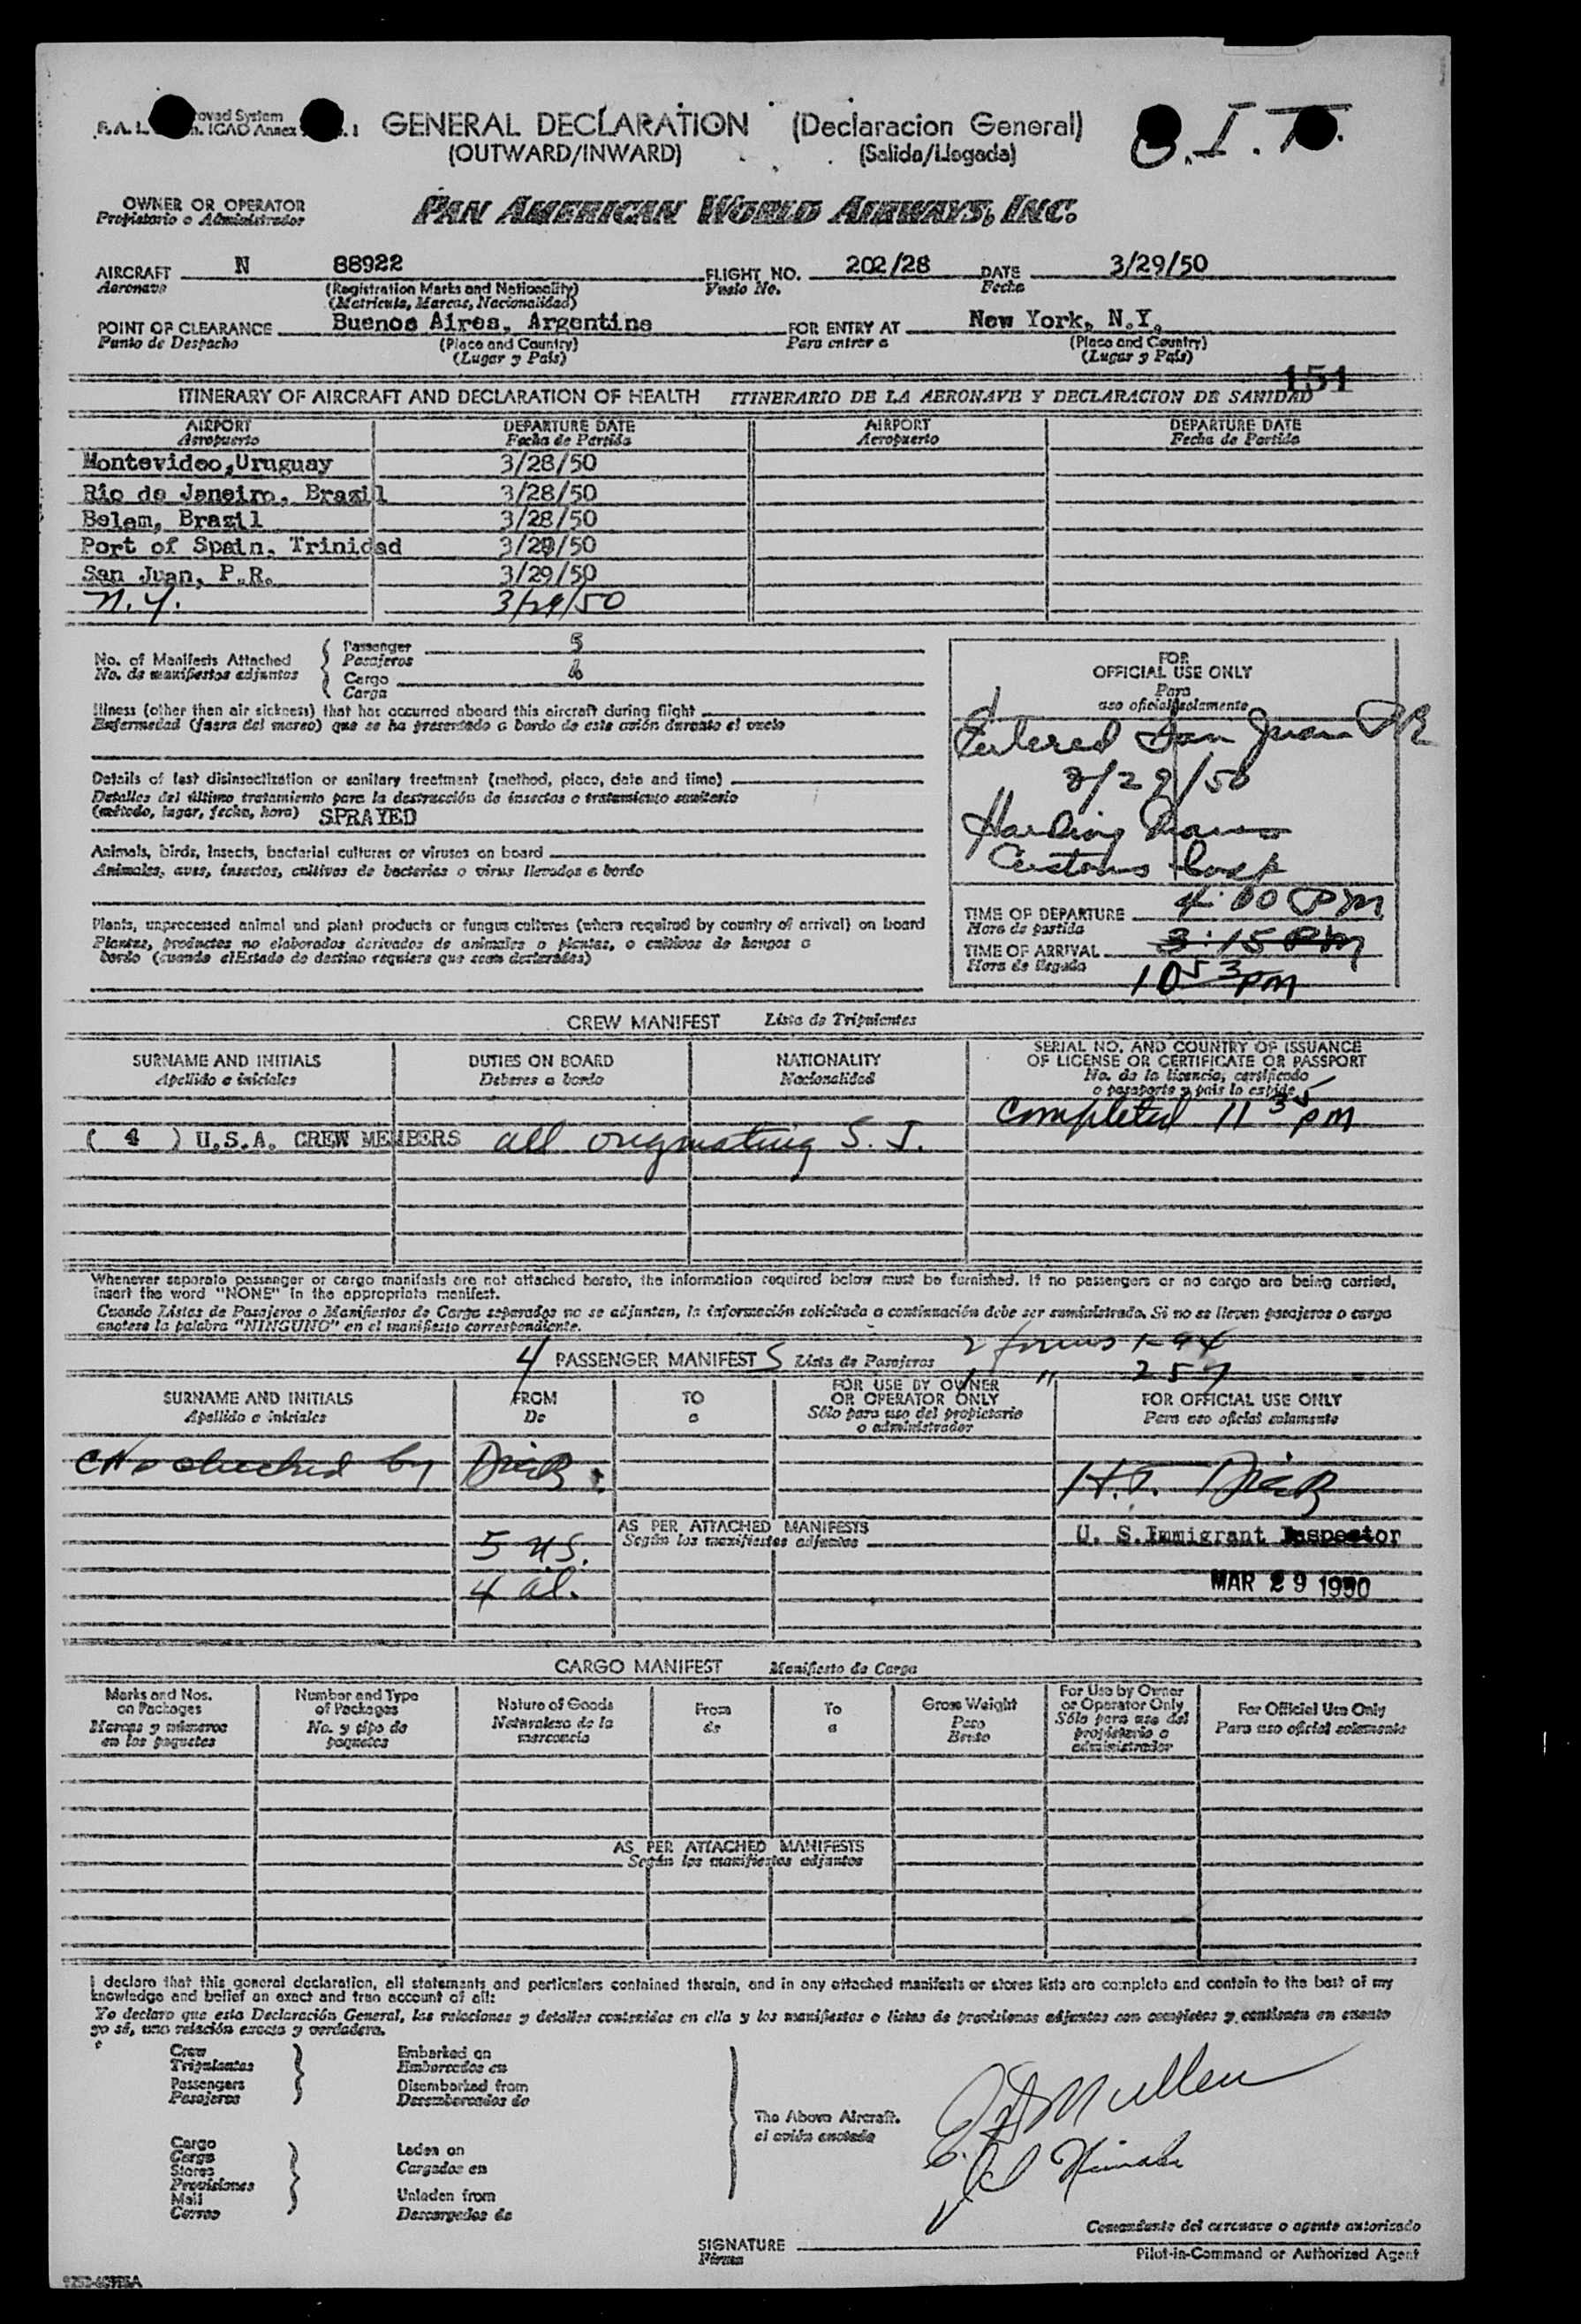 GENERAL DECLARATION (Declaracion General)
(OUTWARD/INWARD) (Salida/Llegada)
OWNER OR OPERATOR
Propietario o Administrador
PAN AMERICAN WORLD AIRWAYS, INC.
AIRCRAFT N 88922 FLIGHT NO. 202/28 DATE 3/29/50
Aeronave (Registration Marks and Nationality) Vuelo No. Fecha
(Matricula, Marcas, Nacionalidad)
POINT OF CLEARANCE Buenos Aires, Argentina FOR ENTRY AT New York, N.Y.
Punto de Despacho (Place and Country) Para entrar a (Place and Country)
(Lugar y País) (Lugar y País)
151
ITINERARY OF AIRCRAFT AND DECLARATION OF HEALTH ITINERARIO DE LA AERONAVE Y DECLARACION DE SANIDAD
AIRPORT DEPARTURE DATE AIRPORT DEPARTURE DATE
Aeropuerto Fecha de Partida Aeropuerto Fecha de Partida
Montevideo,Uruguay 3/28/50
Rio de Janeiro, Brazil 3/28/50
Belem, Brazil 3/28/50
Port of Spain, Trinidad 3/29/50
San Juan, P.R. 3/29/50
N.Y. 3/29/50
No. of Manifests Attached Passenger 5
No. de manifiestos adjuntos Pasajeros
Cargo
Carga
FOR
OFFICIAL USE ONLY
Para
uso oficial solamente
Illness (other than air sickness) that has occurred aboard this aircraft during flight
Enfermedad (fuera del mareo) que se ha presentado a bordo de este avión durante el vuelo
Entered San Juan PR
3/29/50
Details of last disinsectization or sanitary treatment (method, place, date and time)
Detalles del último tratamiento para la destrucción de insectos o tratamiento sanitario
(método, lugar, fecha, hora) SPRAYED
Harding
Customs Insp
Animals, birds, insects, bacterial cultures or viruses on board
Animales, aves, insectos, cultivos de bacterias o virus llevados a bordo
Plants, unprocessed animal and plant products or fungus cultures (where required by country of arrival) on board
Plantas, productos no elaborados derivados de animales o plantas, o cultivos de hongos a
bordo (cuando el Estado de destino requiera que sean declarados)
TIME OF DEPARTURE 4:00 PM
Hora de partida
TIME OF ARRIVAL 3:15 PM
Hora de llegada
10 53 PM
CREW MANIFEST Lista de Tripulantes
SURNAME AND INITIALS DUTIES ON BOARD NATIONALITY SERIAL NO. AND COUNTRY OF ISSUANCE
OF LICENSE OR CERTIFICATE OR PASSPORT
Apellido e iniciales Deberes a bordo Nacionalidad No. de la licencia, certificado
o pasaporte y país lo expide
Completed 11 35 pm
( 4 ) U.S.A. CREW MEMBERS all originating S. J.
Whenever separate passenger or cargo manifests are not attached hereto, the information required below must be furnished. If no passengers or no cargo are being carried,
insert the word "NONE" in the appropriate manifest.
Cuando Listas de Pasajeros o Manifiestos de Carga separados no se adjuntan, la información solicitada a continuación debe ser suministrada. Si no se lleven pasajeros o carga
anotese la palabra "NINGUNO" en el manifiesto correspondiente.
2 forms I-94
4 PASSENGER MANIFEST S Lista de Pasajeros 1 " 257
SURNAME AND INITIALS FROM TO FOR USE BY OWNER
OR OPERATOR ONLY FOR OFFICIAL USE ONLY
Apellido e iniciales De a Sólo para uso del propietario
o administrador Para uso oficial solamente
checked by Diaz
H.T. Diaz
AS PER ATTACHED MANIFESTS
Según los manifiestos adjuntos
U. S. Immigrant Inspector
5 U.S.
4 al.
MAR 29 1950
CARGO MANIFEST Manifiesto de Carga
Marks and Nos.
on Packages
Marcas y números
en los paquetes
Number and Type
of Packages
No. y tipo de
paquetes
Nature of Goods
Naturaleza de la
mercancia
From
de
To
a
Gross Weight
Peso
Bruto
For Use by Owner
or Operator Only
Sólo para uso del
propietario o
administrador
For Official Use Only
Para uso oficial solamente
AS PER ATTACHED MANIFESTS
Según los manifiestos adjuntos
I declare that this general declaration, all statements and particulars contained therein, and in any attached manifests or stores lists are complete and contain to the best of my
knowledge and belief an exact and true account of all:
Yo declaro que esta Declaración General, las relaciones y detalles contenidos en ella y los manifiestos o listas de provisiones adjuntos son completos y contienen en cuanto
yo sé, una relación exacta y verdadera.
Crew
Tripulantes
Passengers
Pasajeros
Embarked on
Embarcados en
Disembarked from
Desembarcados de
The Above Aircraft.
el avión anotado
Cargo
Carga
Stores
Provisiones
Mail
Correo
Laden on
Cargados en
Unladen from
Descargados de
Mullen
Comandante del aeronave o agente autorizado
SIGNATURE
Firma
Pilot-in-Command or Authorized Agent